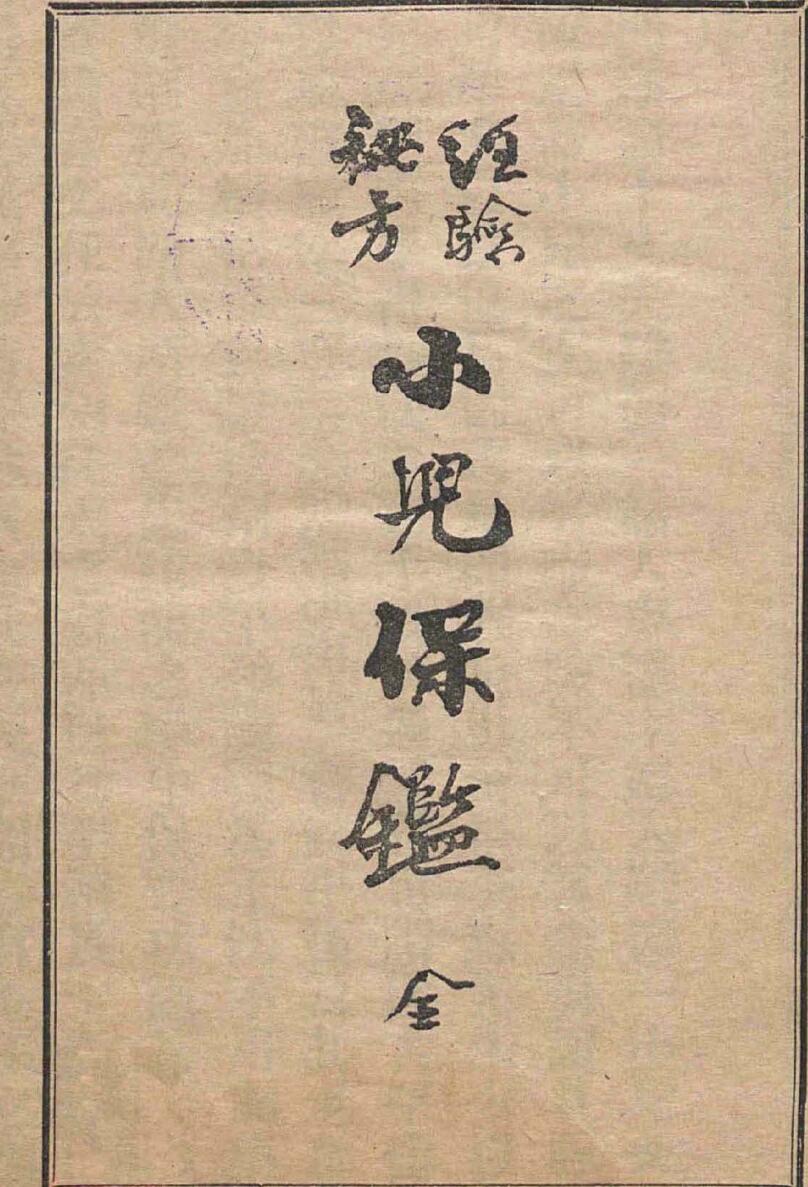 經驗
秘方
小兒保鑑
全